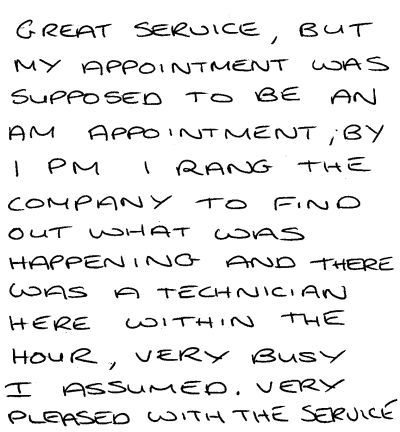 GREAT SERVICE, BUT
MY APPOINTMENT WAS
SUPPOSED TO BE AN
AM APPOINTMENT, BY
1 PM I RANG THE
COMPANY TO FIND
OUT WHAT WAS
HAPPENING AND THERE
WAS A TECHNICIAN
HERE WITHIN THE
HOUR, VERY BUSY
I ASSUMED. VERY
PLEASED WITH THE SERVICE